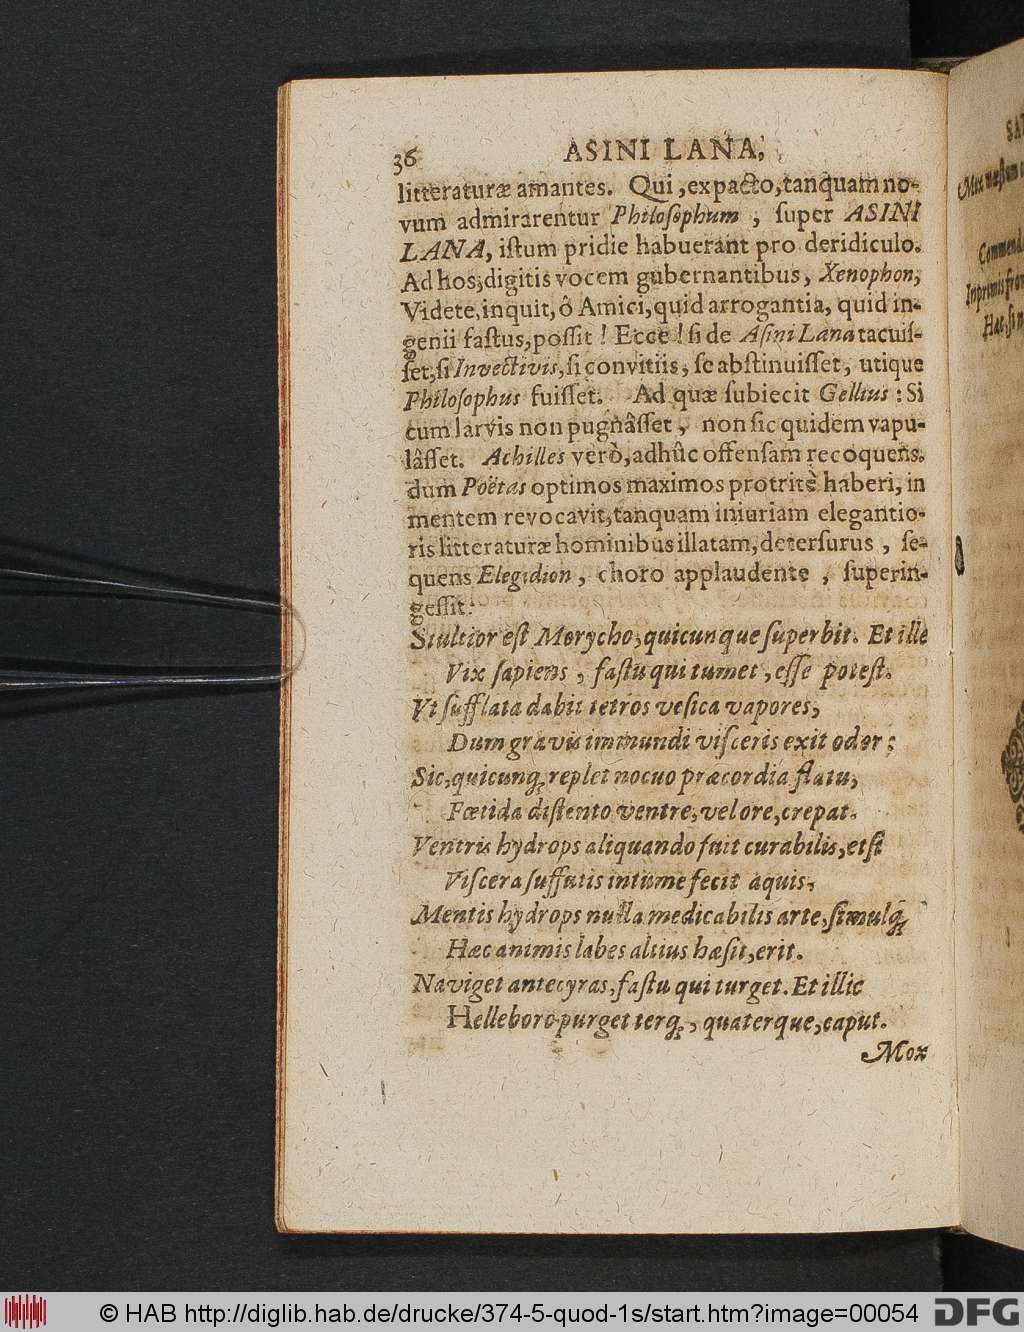 36 ASINI LANA,
litteraturæ amantes. Qui, ex pacto, tanquam no-
vum admirarentur Philoſophum, ſuper ASINI
LANA, iſtum pridie habuerant pro deridiculo.
Ad hos, digitis vocem gubernantibus, Xenophon,
Videte, inquit, ô Amici, quid arrogantia, quid in-
genii faſtus, poſſit! Ecce! ſi de Aſini Lana tacuiſ-
ſet, ſi Invectivis, ſi convitiis, ſe abſtinuiſſet, utique
Philoſophus fuiſſet. Ad quæ ſubiecit Gellius: Si
cum larvis non pugnâſſet, non ſic quidem vapu-
lâſſet. Achilles verò, adhûc offenſam recoquens,
dum Poëtas optimos maximos protritè haberi, in
mentem revocavit, tanquam iniuriam elegantio-
ris litteraturæ hominibus illatam, deterſurus, ſe-
quens Elegidion, choro applaudente, ſuperin-
geſſit:
Stultior eſt Morycho, quicunque ſuperbit. Et ille
Vix ſapiens, faſtu qui tumet, eſſe poteſt.
Vt ſufflata dabit tetros veſica vapores,
Dum gravis immundi viſceris exit odor:
Sic, quicunq; replet nocuo præcordia flatu,
Fœtida diſtento ventre, vel ore, crepat.
Ventris hydrops aliquando fuit curabilis, etſi
Viſcera ſuffuſis intumefecit aquis,
Mentis hydrops nulla medicabilis arte, ſimulq;
Hæc animis labes altius hæſit, erit.
Naviget antecyras, faſtu qui turget. Et illic
Helleboro purget terq;, quaterque, caput.
Mox
SA
Mox mœſtum
Commend
Inprimis fron
Hac, ſi n
© HAB http://diglib.hab.de/drucke/374-5-quod-1s/start.htm?image=00054
DFG